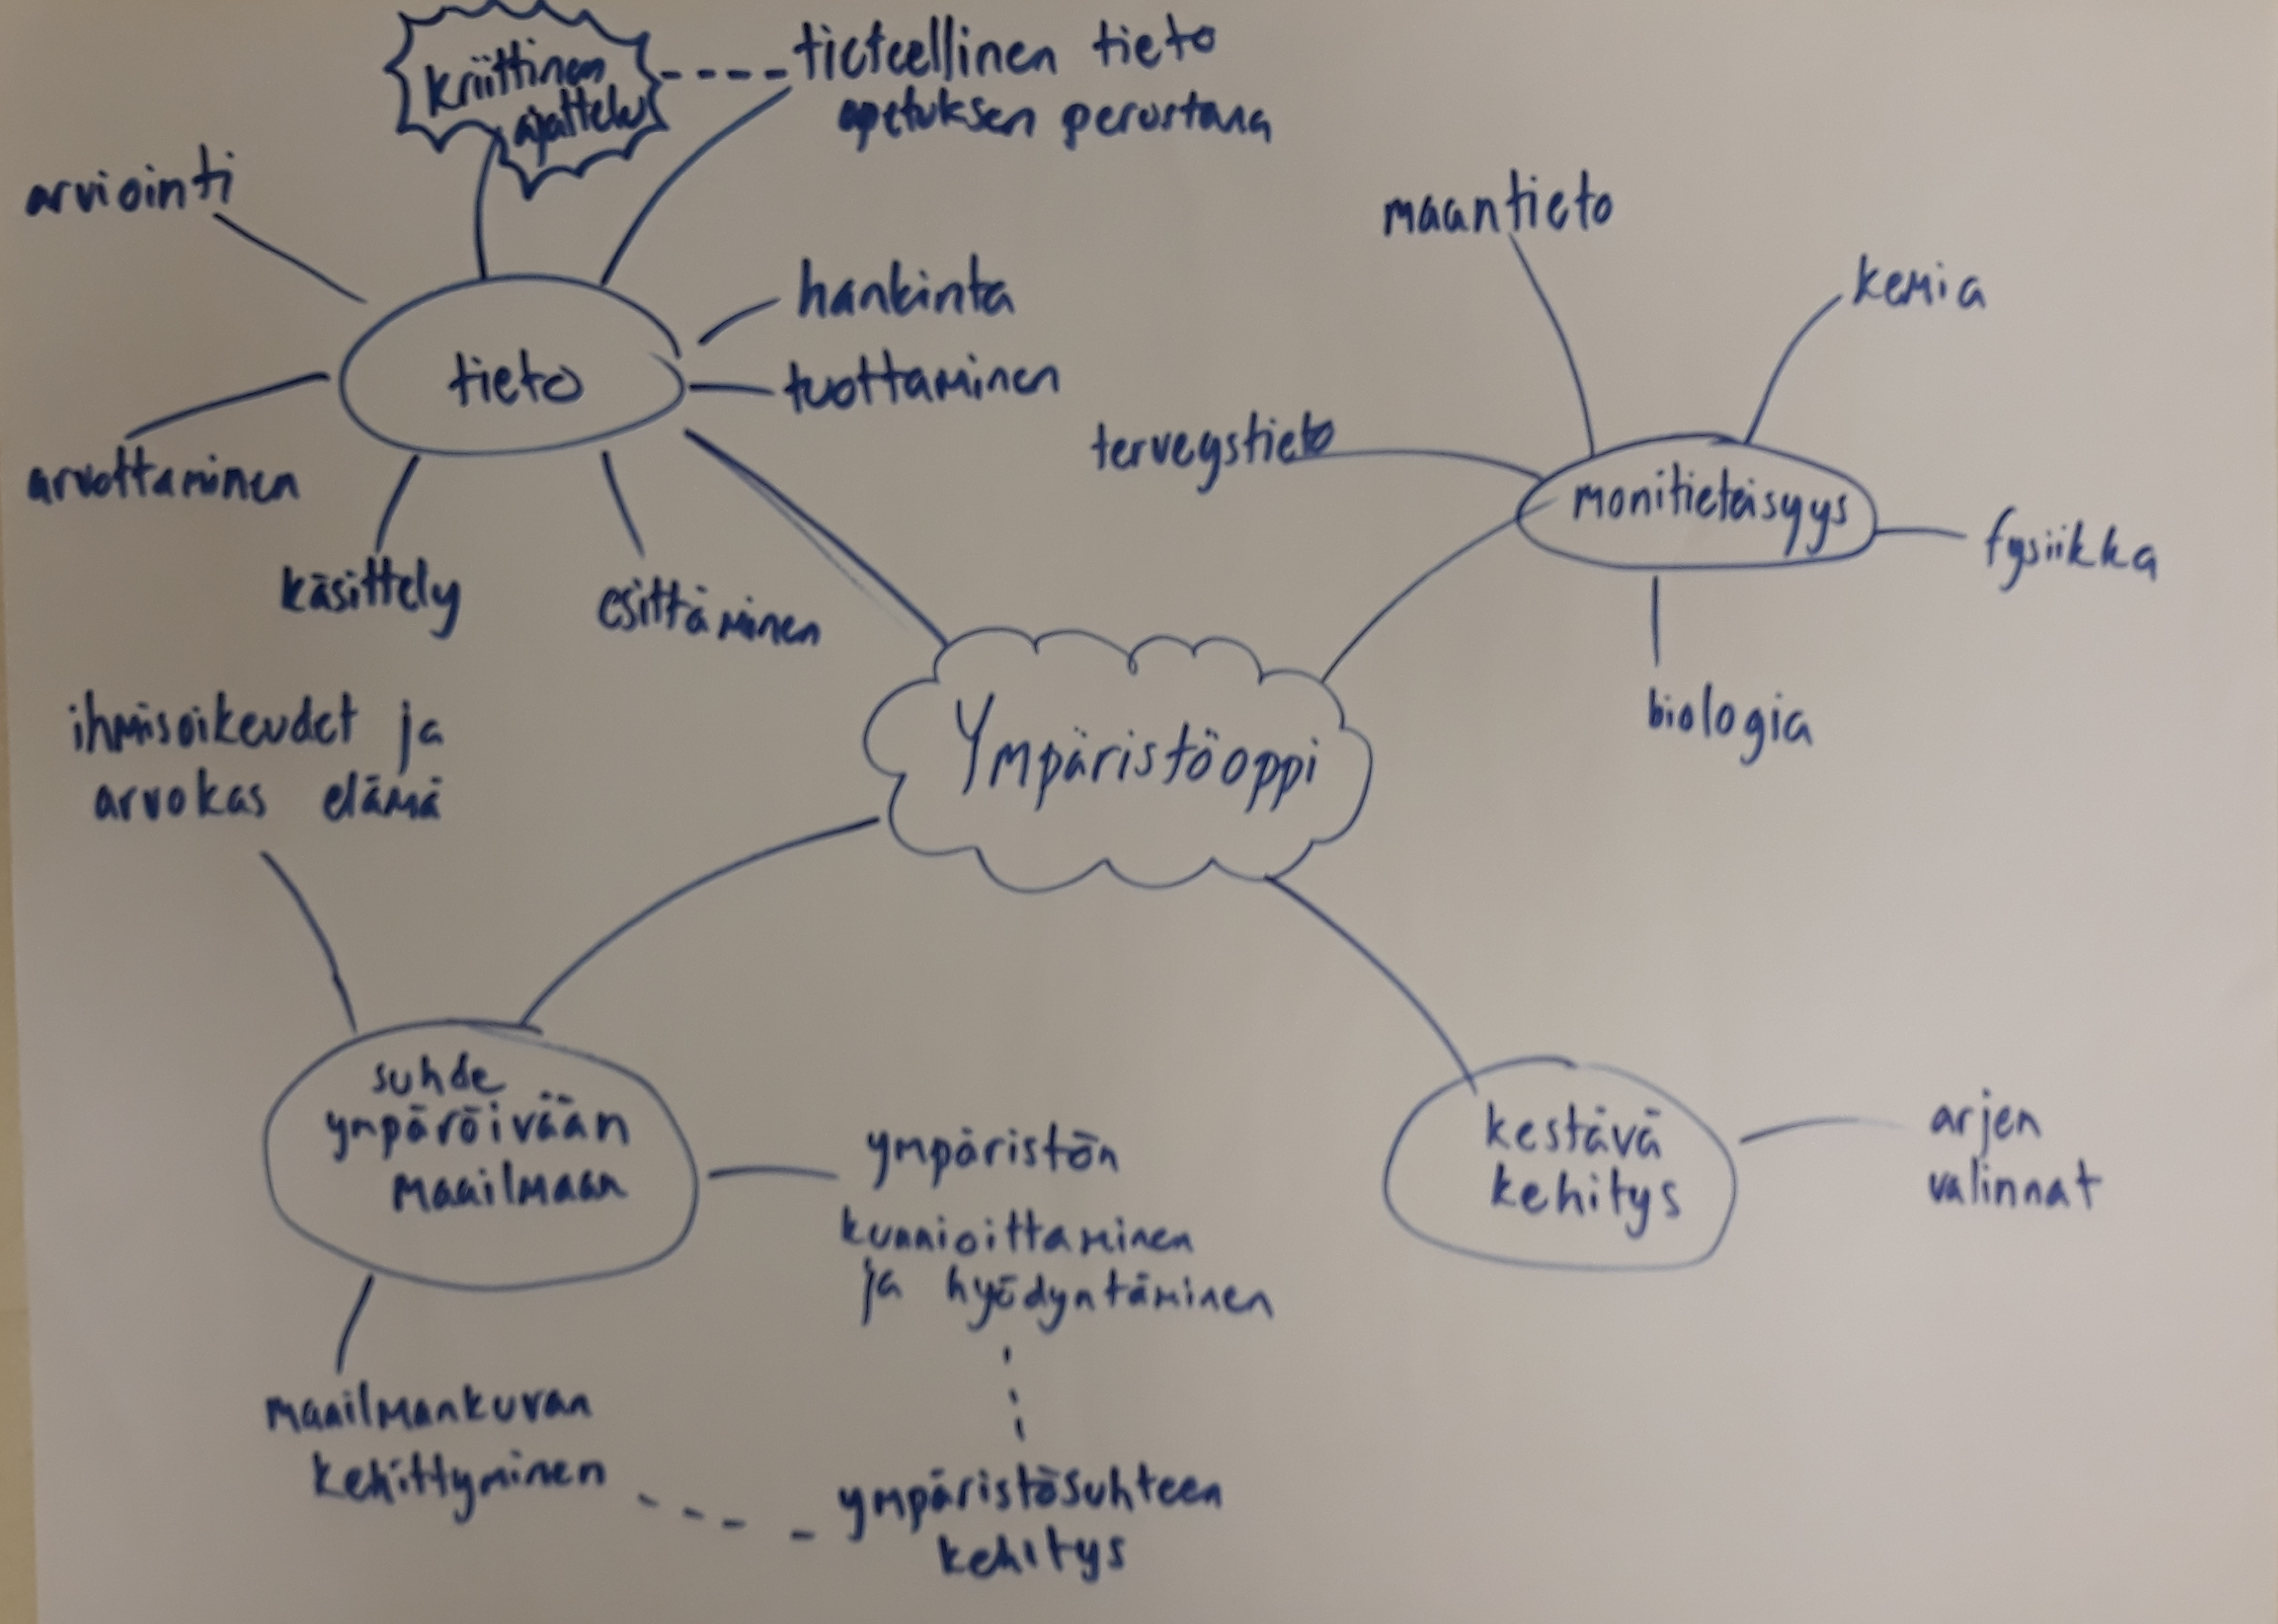 kriittinen
ajattelu
tieteellinen tieto
opetuksen perustana
arviointi
hankinta
tuottaminen
tieto
arvottaminen
käsittely
esittäminen
maantieto
kemia
terveystieto
monitieteisyys
fysiikka
biologia
Ympäristöoppi
ihmisoikeudet ja
arvokas elämä
suhde
ympäröivään
maailmaan
ympäristön
kunnioittaminen
ja hyödyntäminen
kestävä
kehitys
arjen
valinnat
maailmankuvan
kehittyminen
ympäristösuhteen
kehitys